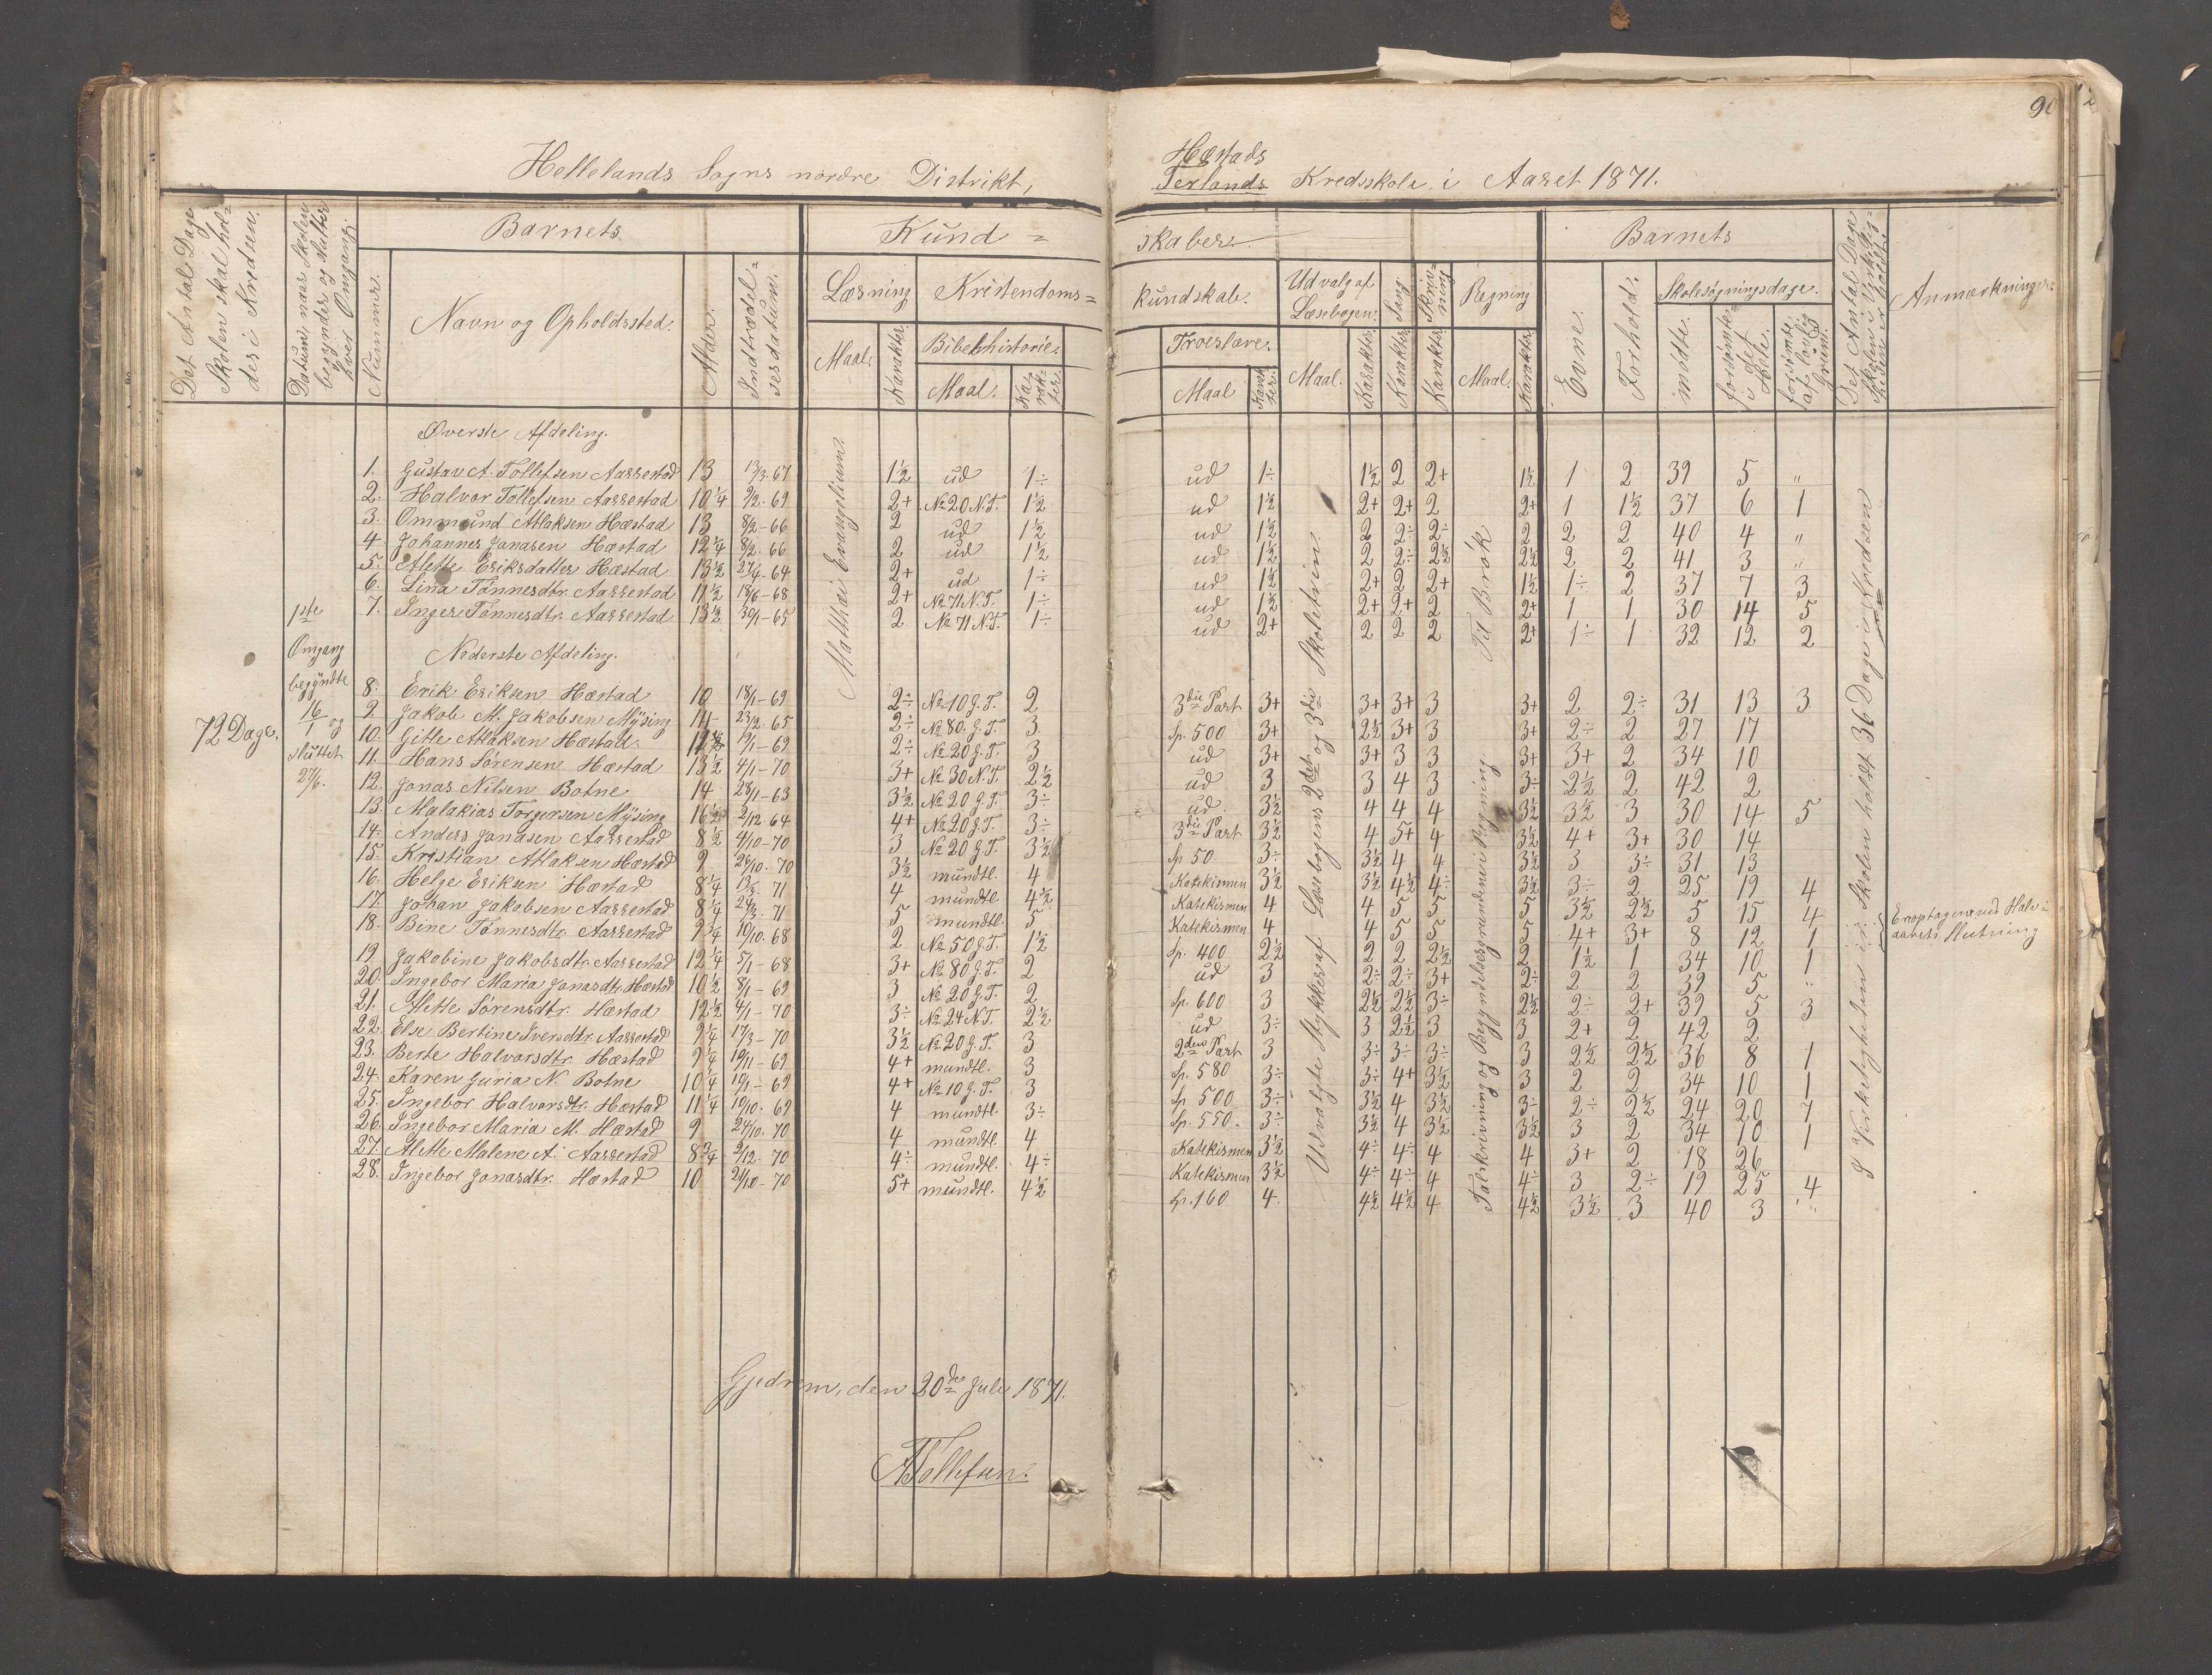 90
Hellelands Sogns nordre Distrikt,
Hæstads
Terlands Kredsskole i Aaret 1871.
Det Antal Dage Skolen skal holdes i Kredsen.
Datum, naar Skolen begynder og slutter hver Omgang.
Barnets
Nummer.
Navn og Opholdssted.
Alder.
Indtrædelsesdatum.
Kund=
Læsning
Maal.
Karakter.
Kristendoms=
Bibelhistorie.
Maal.
Karakter.
skaber.
kundskab.
Troeslære.
Maal
Karakter.
Udvalg af Læsebogen.
Maal.
Karakter.
Sang
Karakter.
Skrivning
Karakter.
Regning
Maal.
Karakter.
Barnets
Evne.
Forhold.
Skolesøgningsdage.
mødte.
forsømte i det Hele.
forsømte af lovlig Grund.
Det Antal Dage Skolen i Virkeligheden er holdt.
Anmærkninger.
72 Dage.
1ste Omgang begyndte 16/1 og sluttet 27/6.
Matthæi Evangelium.
Udvalgte Stykker af Læsebogens 2det og 3die Skoletrin.
Til Brøk
Talskrivning og Begyndelsesgrundene i Regning.
I Virkeligheden er Skolen holdt 36 Dage i Kredsen
Øverste Afdeling.
1. Gustav A. Tollefsen Aarrestad 13 13/3 67 1½ ud 1÷ ud 1÷ 1½ 2 2+ 1½ 1 2 39 5 „
2. Halvor Tollefsen Aarrestad 10¼ 9/2. 69 2+ No 20 N.T. 1½ ud 1½ 2+ 2+ 2 2+ 1 1½ 37 6 1
3. Ommund Atlaksen Hæstad 13 8/2-66 2 ud 1½ ud 1½ 2 2÷ 2÷ 2 2 2 40 4 „
4. Johannes Jonasen Hæstad 12¼ 8/2. 66 2 ud 1½ ud 1½ 2 2÷ 2½ 2½ 2 2 41 3 „
5. Alette Eriksdatter Hæstad 13½ 27/4-64 2+ ud 1÷ ud 1½ 2+ 2 2+ 1½ 1÷ 2 37 7 3
6. Lina Tønnesdtr. Aarrestad 11½ 18/6-68 2+ No 71 N.T. 1÷ ud 1½ 2+ 2+ 2 2+ 1 1 30 14 5
7. Inger Tønnesdtr. Aarrestad 13½ 30/1-65 2 No 71 N.T. 1÷ ud 2+ 2 2 2 2+ 1÷ 1 32 12 2
Nederste Afdeling.
8. Erik Eriksen Hæstad 10 18/1-69 2÷ No 10 G.T. 2 3die Part 3+ 3+ 3+ 3 3+ 2 2÷ 31 13 3
9 Jakob M. Jakobsen Mysing 14 23/2-65 2÷ No 80. G.T. 3 Sp. 500 3+ 2½ 3+ 3 3+ 2÷ 2 27 17
10. Gitle Atlaksen Hæstad. 9/1-69 2÷ No 20 G.T. 3 ud 3+ 3+ 3 3 3+ 3+ 2 34 10
11. Hans Sørensen Hæstad 13½ 4/1-70 3+ No 30 N.T. 2½ ud 3 3 4 3 3÷ 2½ 2 42 2
12. Jonas Nilsen Botne 14 28/1-63 3½ No 20 G.T. 3÷ ud. 3½ 4 4 4 3½ 3½ 3 30 14 5
13. Malakias Torgersen Mysing 16½ 2/12 64 4+ No 20 G.T. 3÷ 3die Part 3½ 4 5+ 4 3½ 4+ 3+ 30 14
14. Anders Jonasen Aarrestad 8½ 4/10-70 3 No 20 G.T. 3½ Sp 50 3÷ 3½ 4 4 3½ 3 3÷ 31 13
15. Kristian Atlaksen Hæstad 9 24/10. 70 3½ mundtl. 4 Katekismen 3½ 3½ 4½ 4÷ 3½ 3÷ 2 25 19 4
16. Helge Eriksen Hæstad 8¼ 13/3. 71 4 mundtl 4½ Katekismen 4 4 5 5 5 3½ 2½ 5 15 4 Er optagen ved Halv=
17. Johan Jakobsen Aarrestad 8¼ 24/3. 71 5 mundtl. 5 Katekismen 4 4 5 5 5 4+ 3+ 8 12 1 aarets Slutning
18. Bine Tønnesdtr. Aarrestad 9¾ 10/10. 68 2 No 50 G.T. 1½ Sp. 400 2½ 2 2 2½ 2 1½ 1 34 10 1
19. Jakobine Jakobsdtr. Aarrestad 12¼ 5/1-68 3+ No 80 G.T. 2 ud 3 2÷ 2÷ 3+ 2÷ 2 2 39 5 „
20. Ingebor Maria Jonasdtr. Hæstad 10½ 8/1-69 3 No 20 G.T. 2 Sp. 600 3 2½ 2½ 3÷ 2½ 2÷ 2+ 39 5 3
21. Mette Sørensdtr. Hæstad 12½ 4/1-70 3÷ No 24 N.T. 2½ ud 3÷ 3 2½ 3 3 2+ 2 42 2
22. Else Bertine Iversdtr. Aarrestad 9¼ 17/3-70 3½ No 20 G.T. 3 2den Part 3 3÷ 3÷ 3÷ 3 2½ 2½ 36 8 1
23. Berte Halvorsdtr. Hæstad 9¼ 19/11-69 4+ mundtl. 3 Sp. 580 3÷ 3÷ 4+ 3½ 3 2 2 34 10 1
24. Karen Juria N. Botne 10¼ 19/1-69 4+ No 10 G.T. 3 Sp 500 3÷ 3½ 4 3½ 3÷ 2÷ 2½ 24 20 7
25. Ingebor Halvorsdtr. Hæstad 11¼ 10/10. 69 4 mundtl. 3÷ Sp. 550. 3÷ 3½ 4 3½ 3½ 3 2 34 10 1
26. Ingebor Maria M. Hæstad 9 24/10. 70 4 mundtl. 4 Katekismen 3½ 4÷ 4÷ 4 4 3+ 2 18 26
27. Mette Malene A. Aarrestad 8¾ 2/12. 70 4÷ mundtl. 4÷ Katekismen 3½ 4÷ 4÷ 4 4÷ 3 2÷ 19 25 4
28. Ingebor Jonasdtr. Hæstad 10 24/10-70 5+ mundtl. 4½ Sp. 160 4. 4½ 4½ 4 4½ 3½ 3 40 3 „
Gjedrem, den 20de Juli 1871.
ATollefsen.